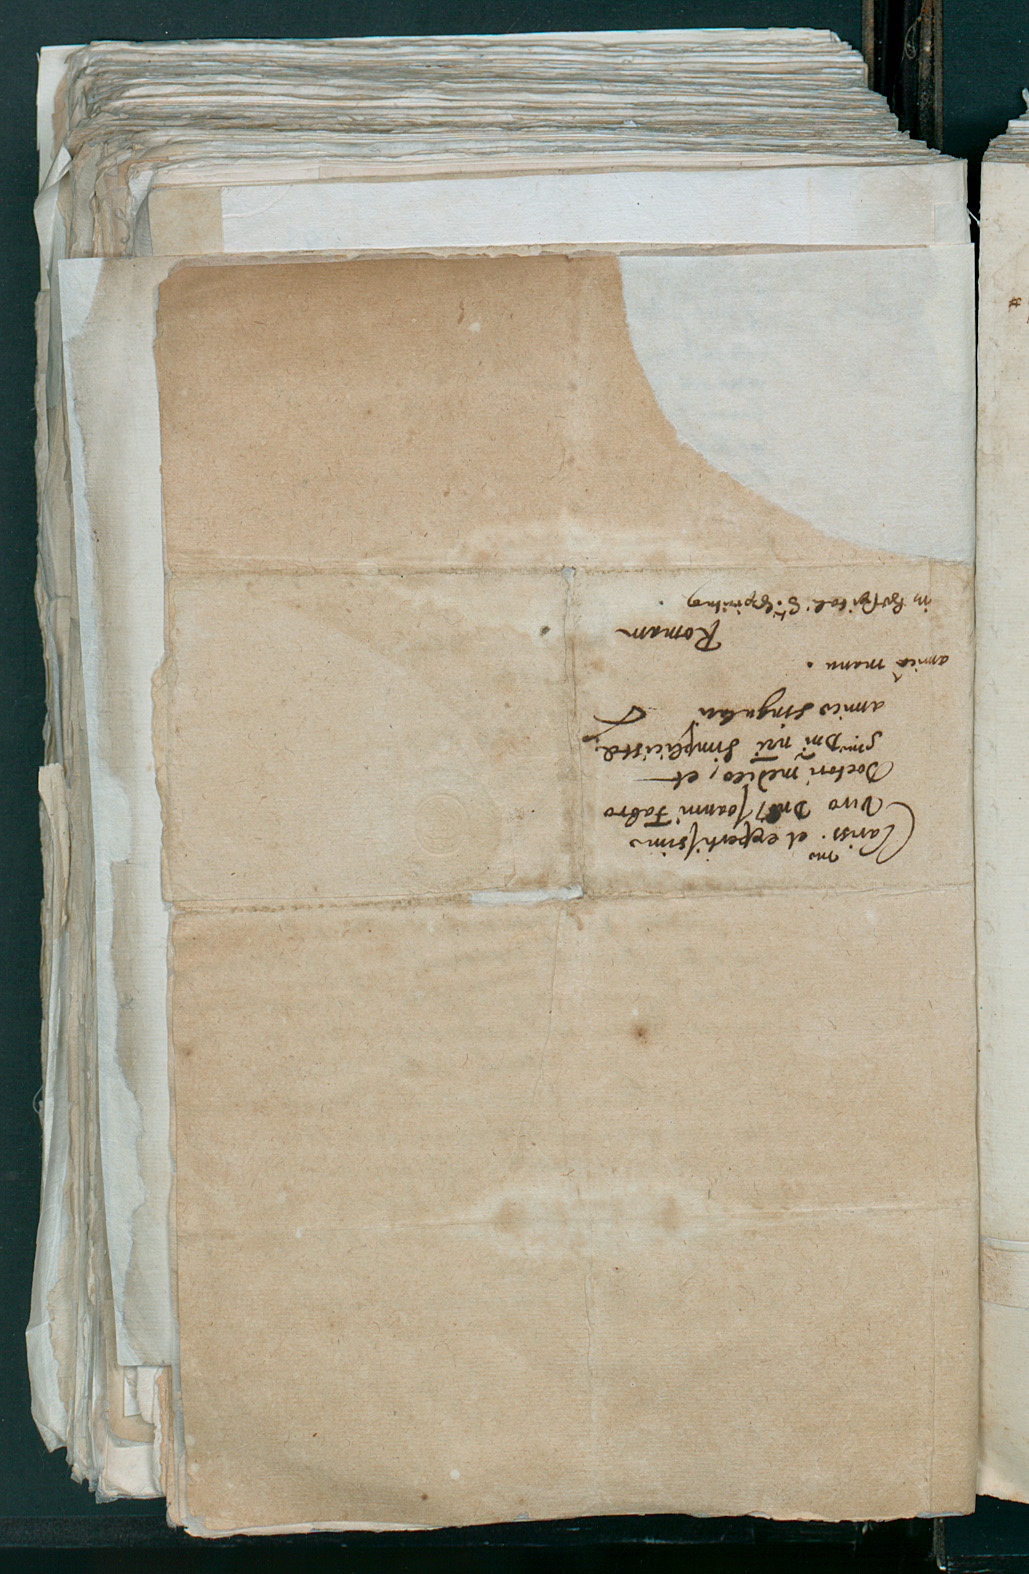 Clariss.mo et expertissimo
Viro Dno Joanni Fabro
Doctori medico, et
Smi Dni nri Simplicistae
amico singulari
amicâ manu.
Romam
in hospitali S.ti Spiritus